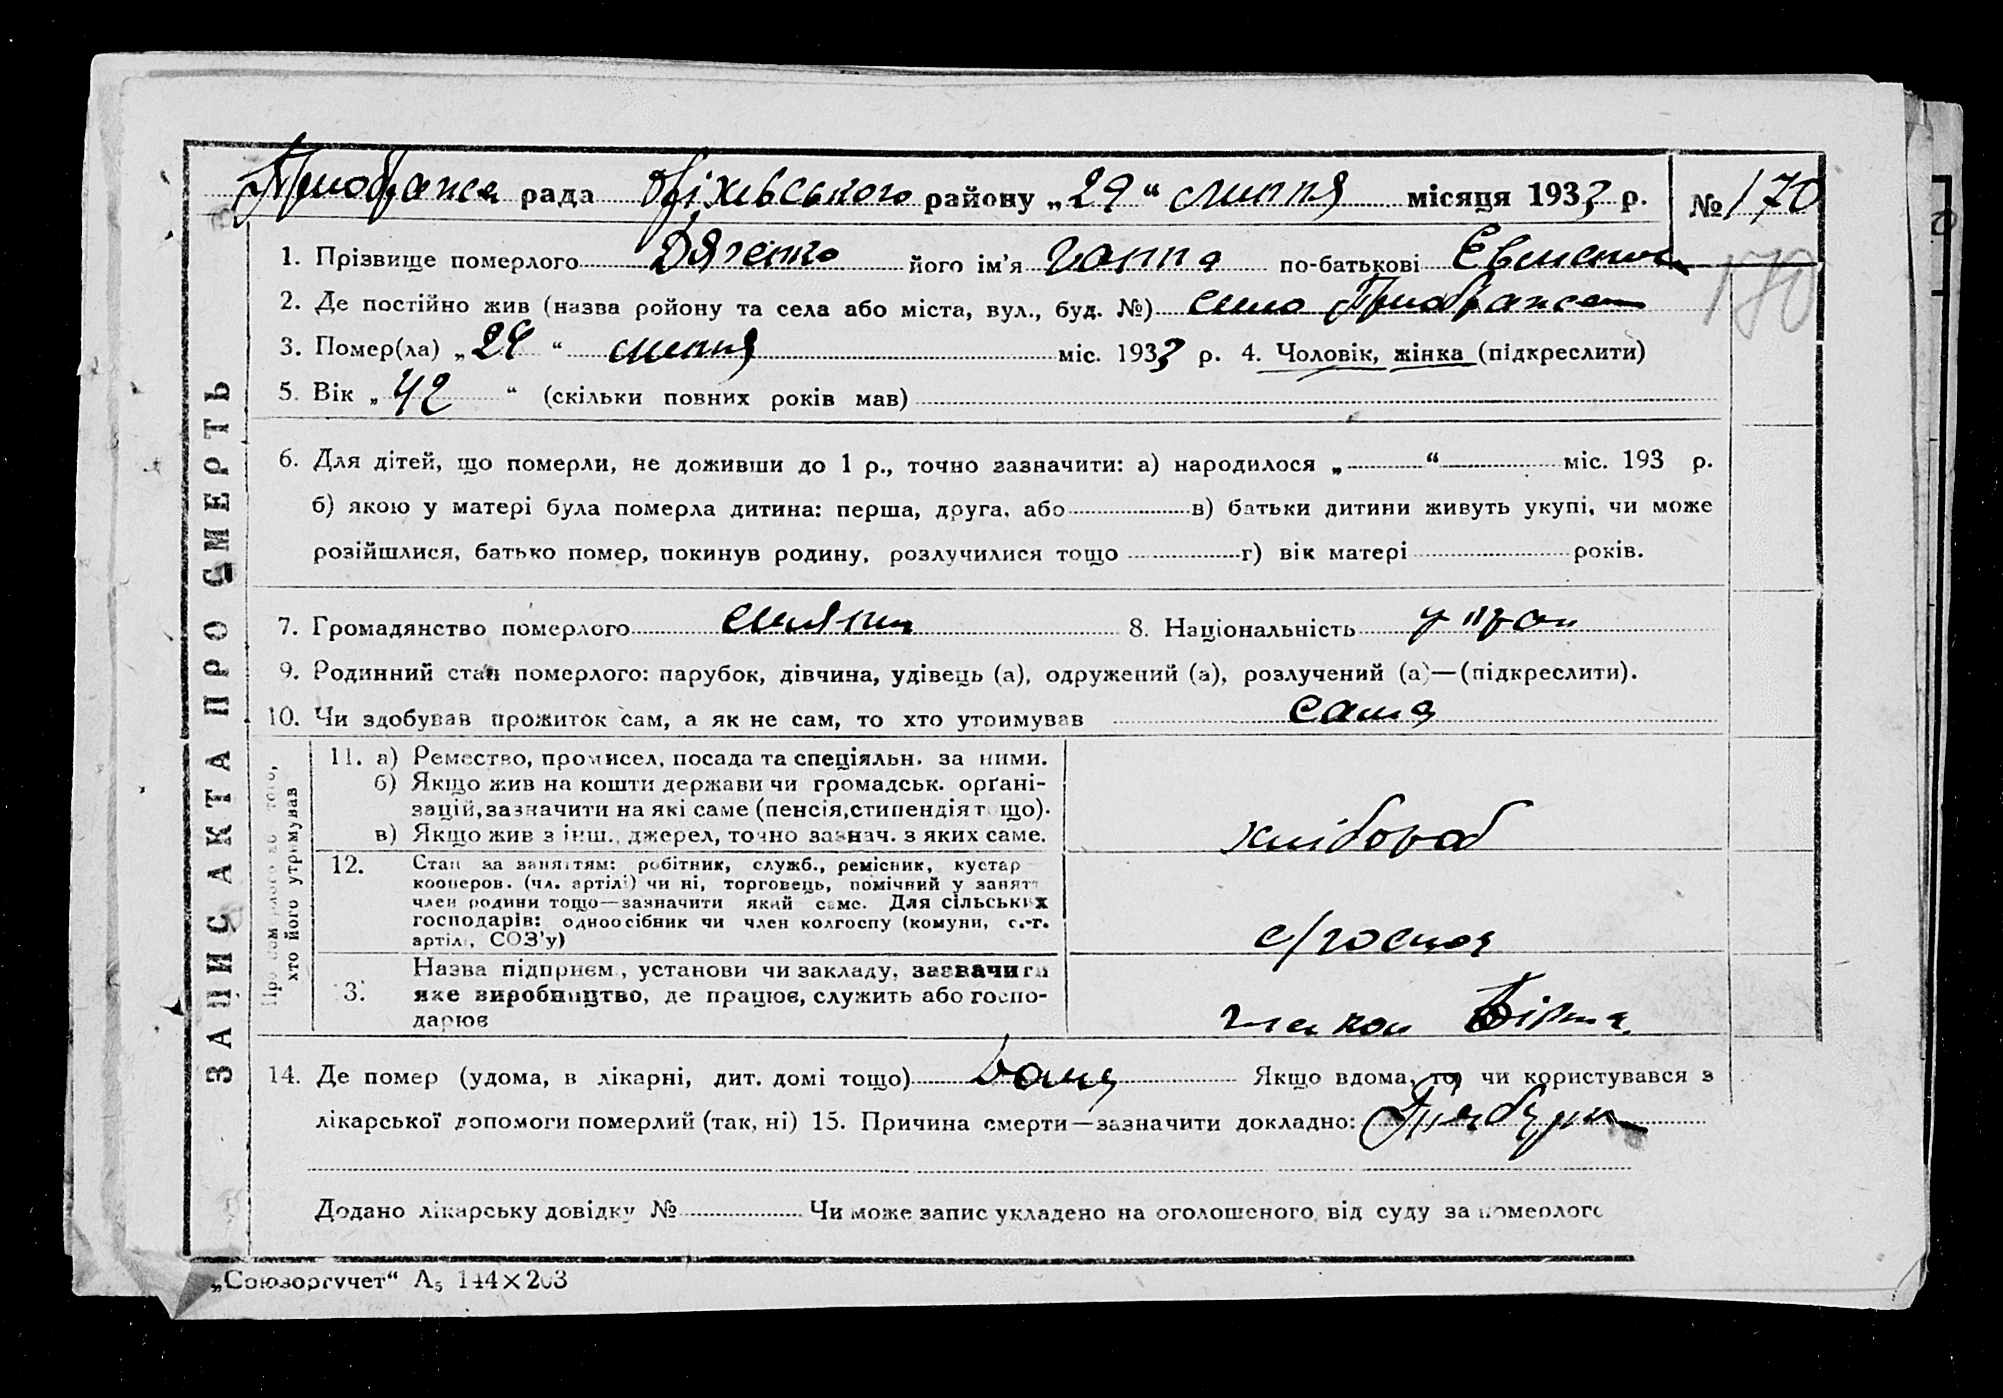 рада Оріхівського району „29“ липня місяця 1933 р. № 170
1. Прізвище померлого Дяченко його ім'я Ганна по-батькові
170
2. Де постійно жив (назва ройону та села або міста, вул., буд. №) село
3. Помер(ла) „29“ липня міс. 1933 р. 4. Чоловік, жінка (підкреслити)
5. Вік „42“ (скільки повних років мав)
6. Для дітей, що померли, не доживши до 1 р., точно зазначити: а) народилося „ “ міс. 193 р.
б) якою у матері була померла дитина: перша, друга, або в) батьки дитини живуть укупі, чи може
розійшлися, батько помер, покинув родину, розлучилися тощо г) вік матері років.
7. Громадянство померлого 8. Національність
9. Родинний стан померлого: парубок, дівчина, удівець (а), одружений (а), розлучений (а)—(підкреслити).
10. Чи здобував прожиток сам, а як не сам, то хто утримував сама
11. а) Ремество, промисел, посада та спеціяльн. за ними.
б) Якщо жив на кошти держави чи громадськ. орґані-
зацій, зазначити на які саме (пенсія, стипендія тощо).
в) Якщо жив з інш., джерел, точно зазнач. з яких саме.
хлібороб
12. Стан за заняттям: робітник, служб., ремісник, кустар
кооперов. (чл. артілі) чи ні, торговець, помічний у занятт
член родини тощо—зазначити який саме. Для сільських
господарів: одноосібник чи член колгоспу (комуни, с.-г.
артілі, СОЗ'у)
13. Назва підприєм., установи чи закладу, зазначити
яке виробництво, де працює, служить або госпо-
дарює
14. Де помер (удома, в лікарні, дит. домі тощо) Дома Якщо вдома, то чи користувався з
лікарської допомоги померлий (так, ні) 15. Причина смерти—зазначити докладно:
Додано лікарську довідку № Чи може запис укладено на оголошеного від суду за померлого
ЗАПИС АКТА ПРО СМЕРТЬ
хто його утримував
„Союзоргучет“ А₅ 144×203